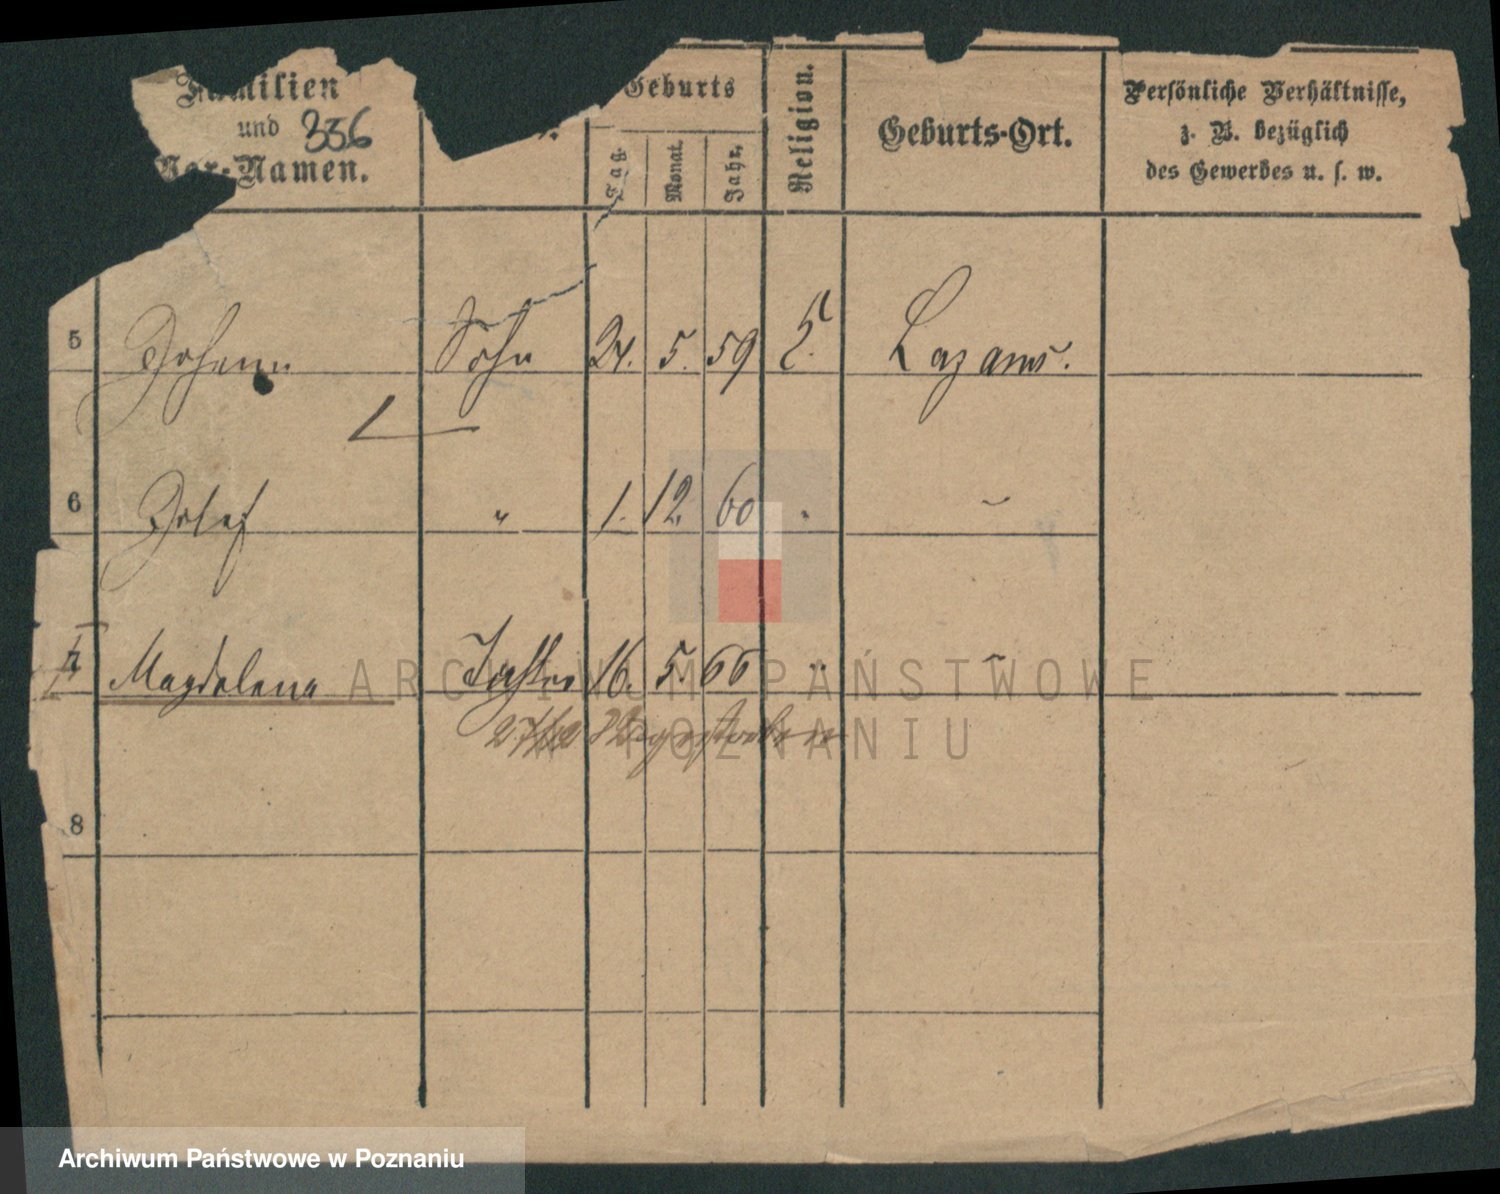 Familien
und 336
Vor-Namen.
Geburts
Tag.
Monat.
Jahr.
Religion.
Geburts-Ort.
Persönliche Verhältnisse,
z. B. bezüglich
des Gewerbes u. s. w.
5 Johann Sohn 24. 5. 59 Lazarus.
6 Josef " 1. 12. 60 "
7 Magdalena Tochter 16. 5. 66 "
gestorben
8
ARCHIWUM PAŃSTWOWE
W POZNANIU
Archiwum Państwowe w Poznaniu